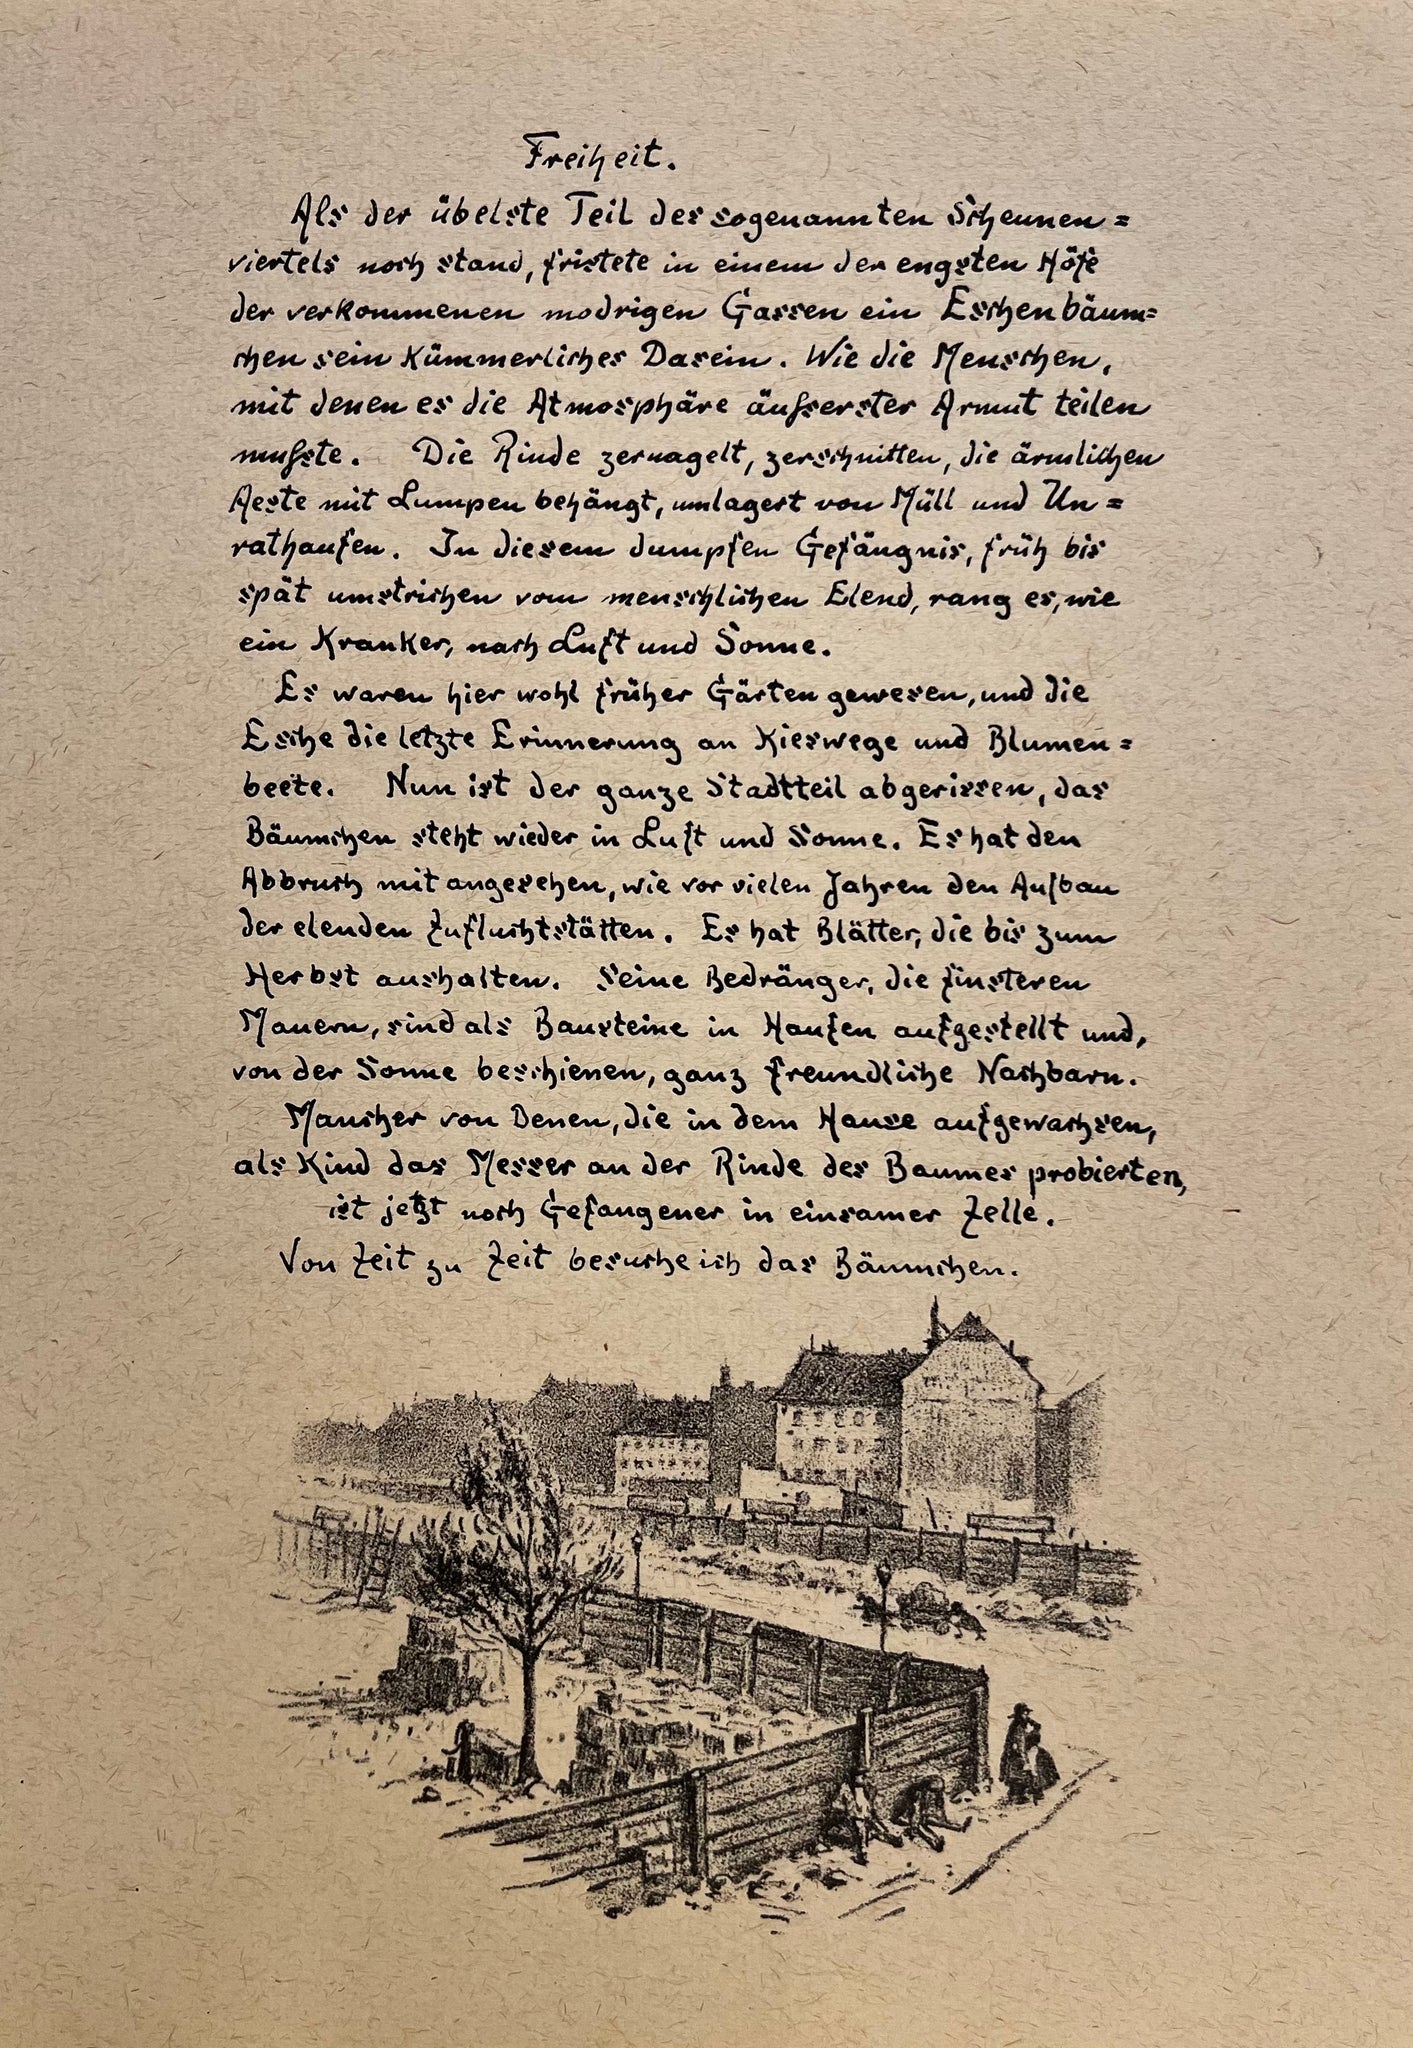 Freiheit.
Als der übelste Teil des sogenannten Scheunen=
viertels noch stand, fristete in einem der engsten Höfe
der verkommenen modrigen Gassen ein Eschenbäum=
chen sein kümmerliches Dasein. Wie die Menschen,
mit denen es die Atmosphäre äußerster Armut teilen
mußte. Die Rinde zernagelt, zerschnitten, die ärmlichen
Aeste mit Lumpen behängt, umlagert von Müll und Un=
rathaufen. In diesem dumpfen Gefängnis, früh bis
spät umstrichen vom menschlichen Elend, rang es, wie
ein Kranker, nach Luft und Sonne.
Es waren hier wohl früher Gärten gewesen, und die
Esche die letzte Erinnerung an Kieswege und Blumen=
beete. Nun ist der ganze Stadtteil abgerissen, das
Bäumchen steht wieder in Luft und Sonne. Es hat den
Abbruch mit angesehen, wie vor vielen Jahren den Aufbau
der elenden Zufluchtstätten. Es hat Blätter, die bis zum
Herbst aushalten. Seine Bedränger, die finsteren
Mauern, sind als Bausteine in Haufen aufgestellt und,
von der Sonne beschienen, ganz freundliche Nachbarn.
Mancher von Denen, die in dem Hause aufgewachsen,
als Kind das Messer an der Rinde des Baumes probierten,
ist jetzt noch Gefangener in einsamer Zelle.
Von Zeit zu Zeit besuche ich das Bäumchen.